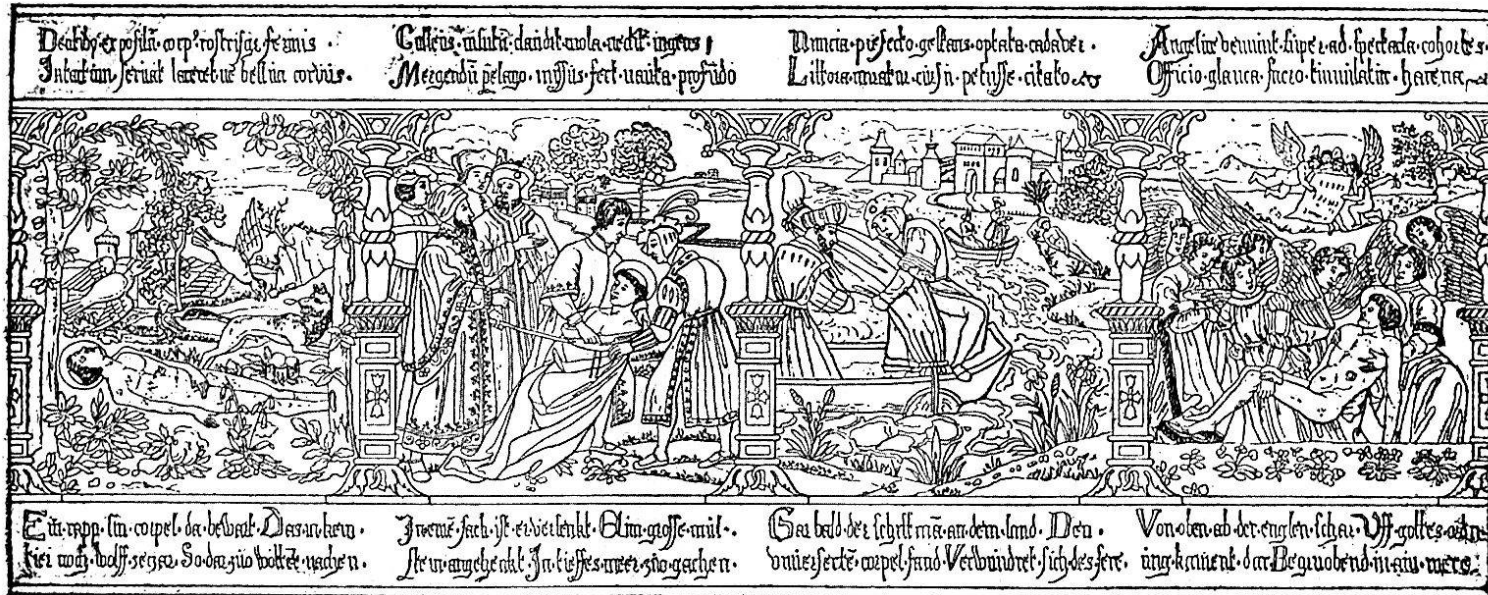 Dentiby expositū corp' rostrisqz ferinis ·
Intactum seruat laceret ne bellua coruus.
Culleus · insutū · claudit · mola · nectit · ingens
Mergendū pelago · missus · fert · nauita · profūdo
Nuncia · prefecto · gestans · optata · cadauer ·
Littora · miratur · cursū · petiisse · citato
Angelice veniunt super · ad · spectacla · cohortes ·
Officio · glauca · sacro · tumulatur · harena
Ein · rapp · sin · corpel · da · bewart · Das · in · kein ·
tier noch · wolff · segar · So · dar · zuo nachen ·
In · sack · ist · er · versenkt · Ein · grosse · mul ·
stein · angehenkt · In · tieffes · meer · zuo · gachen ·
Gar bald · der schiffmā · an · dem · land · Den ·
vnuersertē · corpel · fand · Verwundret · sich · des · sere ·
Von · oben · ab · der · englen · schar · Uff · gottes · ordn
ung · kament · dar · Begruobend · in · am · mere